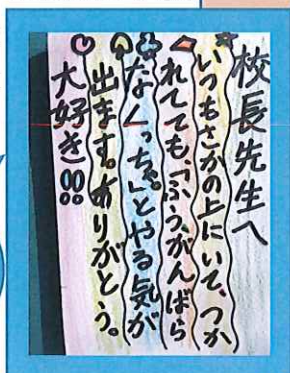 校長先生へ
いつもさかの上にいて、つか
れてても、「ふぅ、がんばら
なくっちゃ。」とやる気が
出ます。ありがとう。
大好き!!